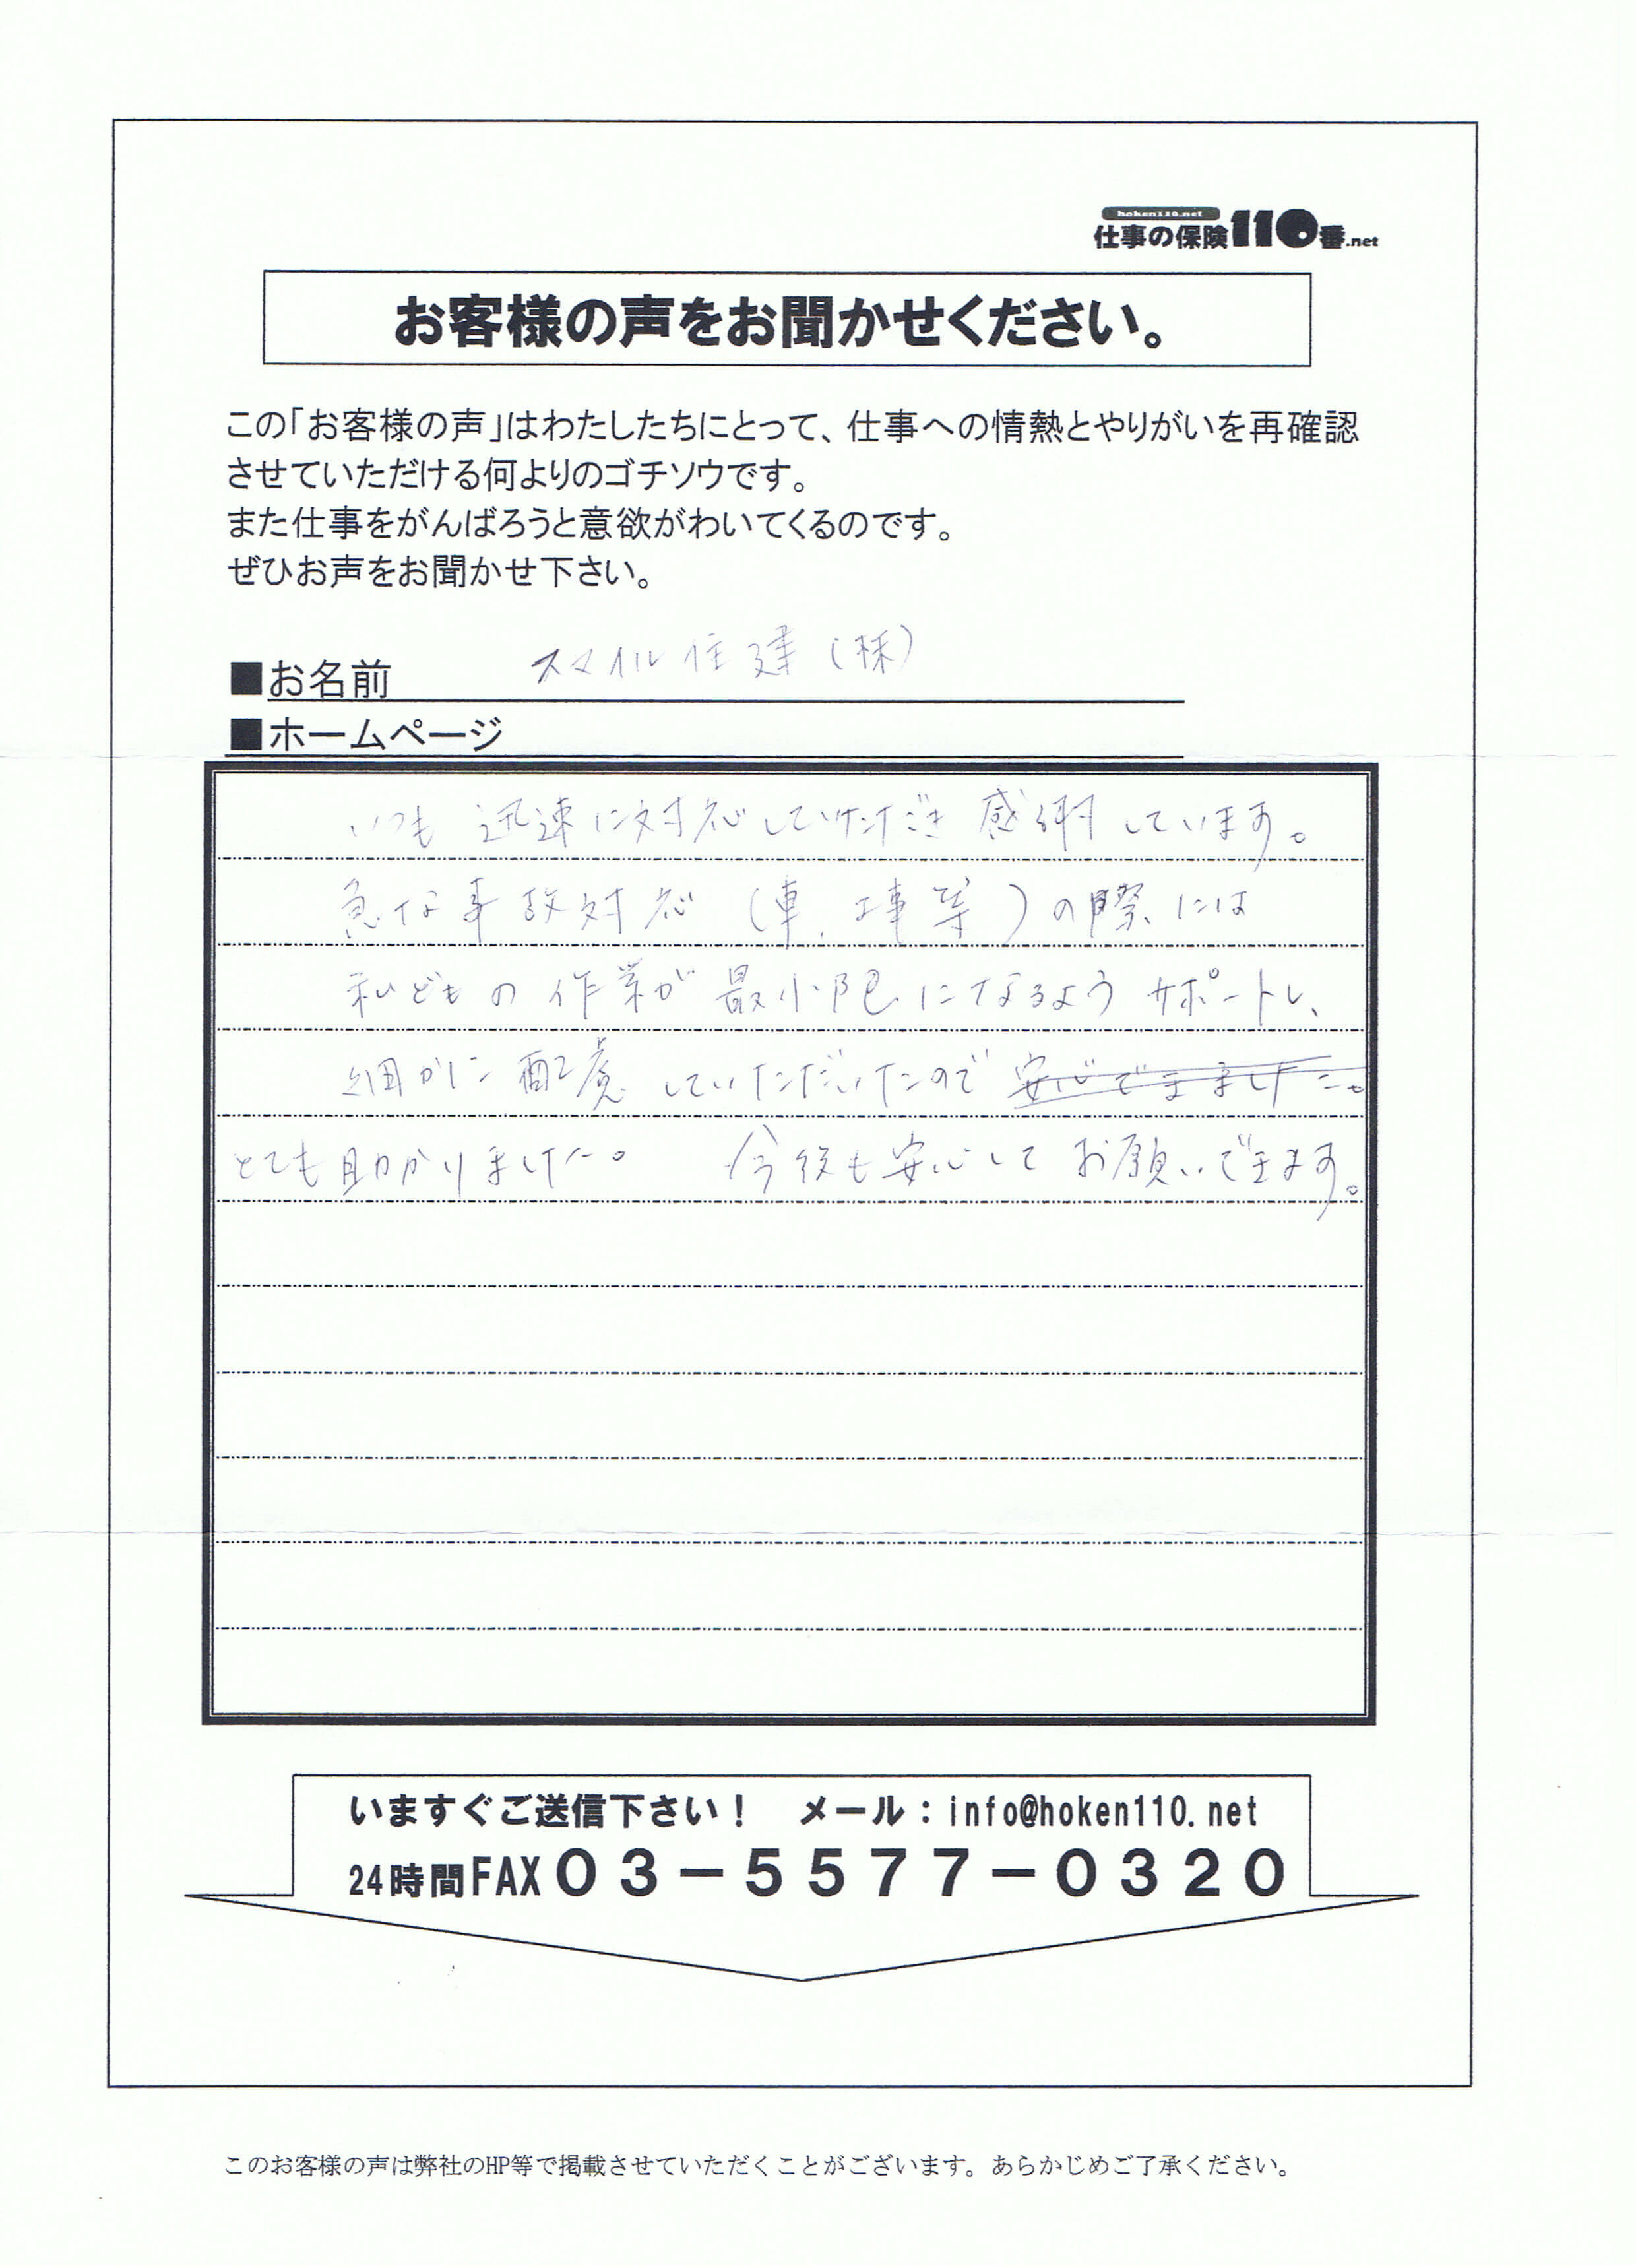 hoken110.net
仕事の保険110番.net
お客様の声をお聞かせください。
この「お客様の声」はわたしたちにとって、仕事への情熱とやりがいを再確認
させていただける何よりのゴチソウです。
また仕事をがんばろうと意欲がわいてくるのです。
ぜひお声をお聞かせ下さい。
■お名前 スマイル住建(株)
■ホームページ
いつも 迅速に対応していただき 感謝しています。
急な事故対応 (車、工事等)の際には
私どもの作業が最小限になるようサポートし、
細かに配慮していただいたので 安心できました。
とても助かりました。 今後も安心してお願いできます。
いますぐご送信下さい! メール:info@hoken110.net
24時間FAX03-5577-0320
このお客様の声は弊社のHP等で掲載させていただくことがございます。あらかじめご了承ください。